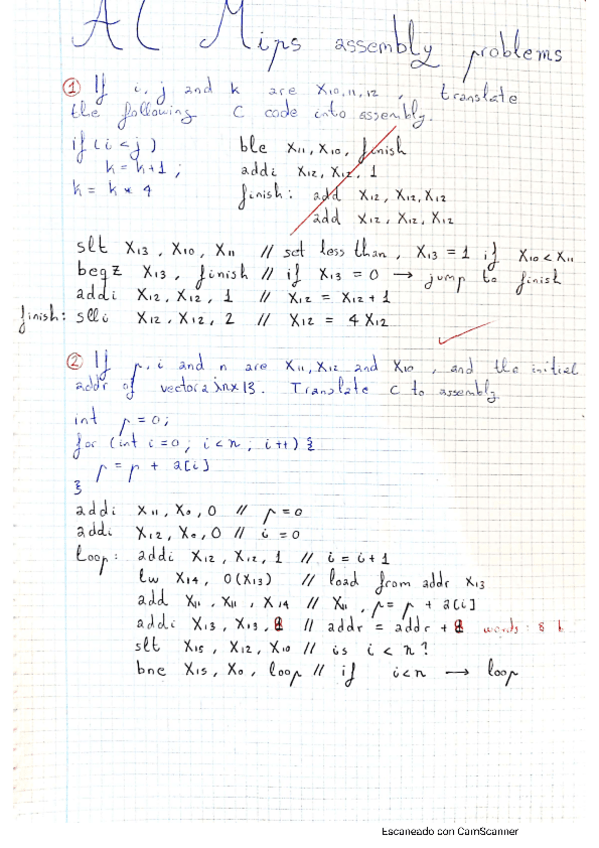 AC Mips assembly problems
① If i, j and k are X10,11,12, translate
the following C code into assembly.
if (i < j)
k = k+1;
k = k * 4
ble X11, X10, finish
addi X12, X12, 1
finish: add X12, X12, X12
add X12, X12, X12
slt X13, X10, X11 // set less than, X13 = 1 if X10 < X11
beqz X13, finish // if X13 = 0 → jump to finish
addi X12, X12, 1 // X12 = X12 + 1
finish: slli X12, X12, 2 // X12 = 4 X12
② If p, i and n are X11, X12 and X10, and the initial
addr of vector a in x13. Translate C to assembly
int p = 0;
for (int i = 0; i < n; i++) {
p = p + a[i]
}
addi X11, X0, 0 // p = 0
addi X12, X0, 0 // i = 0
loop: addi X12, X12, 1 // i = i + 1
lw X14, 0(X13) // load from addr X13
add X11, X11, X14 // X11, p = p + a[i]
addi X13, X13, 8 // addr = addr + 8 words: 8 b
slt X15, X12, X10 // is i < n?
bne X15, X0, loop // if i<n → loop
Escaneado con CamScanner